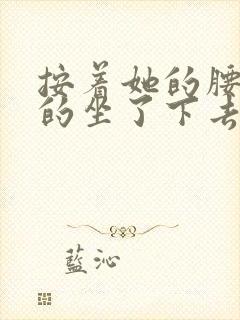 按着她的腰
的坐了下去
藍沁